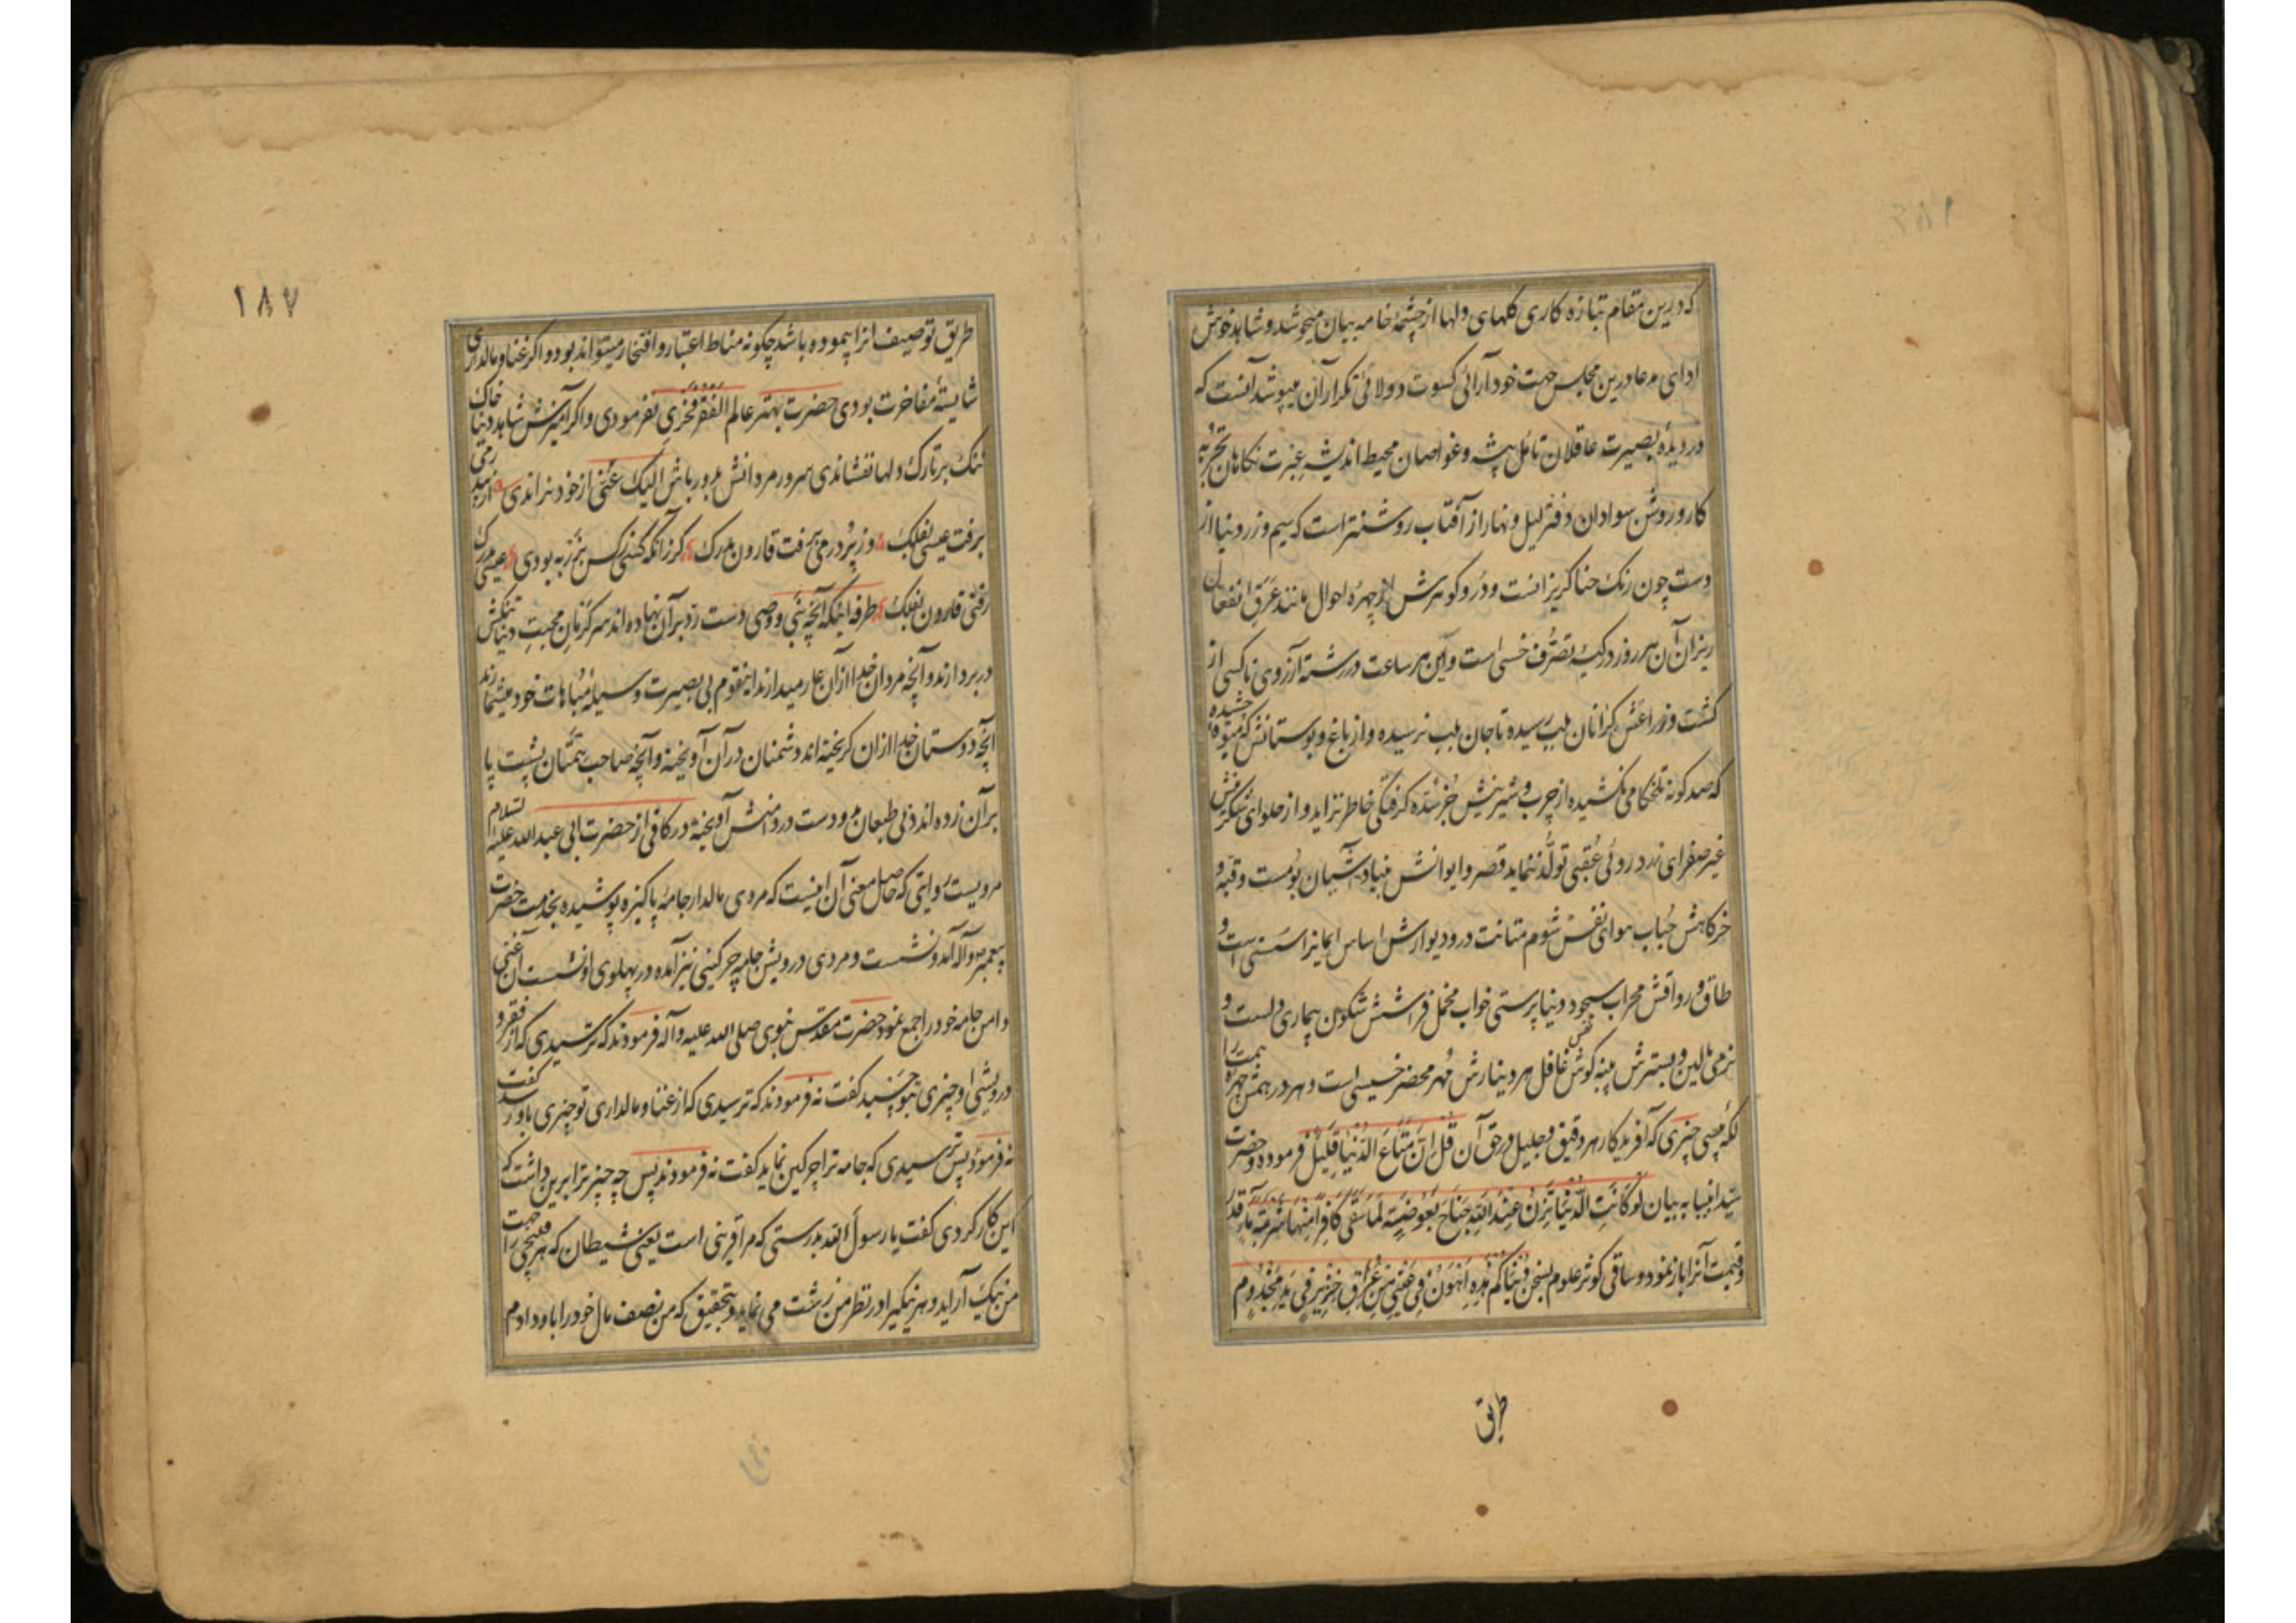 که درین مقام بتازه کاری گلهای دلها از چشمهٔ خامه بیان میجوشد و شاهد خوش
ادای مدعا درین مجلس جهت خودآرائی کسوت دولائی تکرار آن میپوشد آنست که
در دیدهٔ بصیرت عاقلان تامل پیشه و غواصان محیط اندیشه عبرت نگاهان تجربه
کار و روشن سوادان دفتر لیل و نهار از آفتاب روشنتر است که سیم و زر دنیا از
دست چون رنگ حنا گریزانست و در و گوهرش از چهرهٔ احوال مانند عرق انفعال
ریزان آن هر روز در کیسهٔ تصرف خسی است و این هر ساعت در رشتهٔ آرزوی ناکسی از
کشت و زراعتش گرانان بلب رسیده تا جان بلب نرسیده و از باغ و بوستانش که میوهٔ چشیده
که صد گونه تلخکامی نکشیده از چرب و شیرینش جز سدهٔ گرفتگی خاطر نزاید و از حلوای شکرینش
غیر صفرای زرد روئی عقبی تولد ننماید قصر و ایوانش بنیاد آشیان بومست و قبهٔ و
خرگاهش حباب هوای نفس شوم متانت در و دیوارش اساس ایمانرا سستی است و
طاق و رواقش محراب سجود دنیا پرستی خواب مخمل فراشش شگون بیماری دلست و
نرمی بالین و بسترش پنبه گوش نفس غافل هر دینارش مهر محضر خسیسی است و هر درهمش چهرهٔ همت را
لکهٔ پیسی چیزی که آفریدگار هر دقیق و جلیل در حق آن قُلْ اِنَّ مَتَاعَ الدُّنْيَا قَلِيلٌ فرموده و حضرت
سید انبیا به بیان لَوْ كَانَتِ الدُّنْيَا تَزِنُ عِنْدَ اللهِ جَنَاحَ بَعُوضَةٍ لَمَا سَقَى كَافِراً مِنْهَا شَرْبَةَ مَاءٍ قدر
و قیمت آنرا باز نموده و ساقی کوثر علوم بسخن دُنْيَاكُمْ هٰذِهِ اَهْوَنُ فِي عَيْنِي مِنْ عُرَاقِ خِنْزِيرٍ فِي يَدِ مَجْذُومٍ
طریق
۱۸۷
طریق توصیف انرا پیموده باشد چگونه مناط اعتبار و افتخار میتواند بود و اگر غنا و مالداری
شایستهٔ مفاخرت بودی حضرت بهتر عالم الْفَقْرُ فَخْرِي نفرمودی و اگر آمیزش شاهد دنیا خاک
ننگ بر تارک دلها نفشاندی سرور مردانش بدورباش اِلَيْكِ عَنِّي از خود نراندی از بیدرمی
برفت عیسی بفلک وز پر درمی برفت قارون بدرک گر زانکه کسی کس بزر به بودی عیسی بدرک
رفتی قارون بفلک طرفه اینکه آنچه نبی و وصی دست رد بر آن نهاده اند سرگرمان محبت دنیا تنگش
در بر دارند و آنچه مردان خدا از آن عار میدارند اینقوم بی بصیرت وسیلهٔ مباهات خود میشمارند
آنچه دوستان خدا ازان گریخته اند دشمنان در آن آویخته و آنچه صاحب همتان پشت پا
بر آن زده اند دنی طبعان دو دست در دامنش آویخته در کافی از حضرت ابی عبد الله علیه السلام
مرویست روایتی که حاصل معنی آن اینست که مردی مالدار جامهٔ پاکیزه پوشیده بخدمت حضرت
پیغمبر ص و آله آمد و نشست و مردی درویش جامه چرکینی نیز آمده در پهلوی او نشست آن غنی
دامن جامه خود را جمع نمود حضرت مقدس نبوی صلی الله علیه و آله فرمودند که ترسیدی که از فقر و
درویشی او چیزی بتو چسبد گفت نه فرمودند که ترسیدی که از غنا و مالداری تو چیزی باو رسد گفت
نه فرمود پس ترسیدی که جامه ترا چرکین نماید گفت نه فرمودند پس چه چیز ترا برین داشت که
این کار کردی گفت یا رسول الله بدرستی که مرا قرینی است یعنی شیطان که هر قبیحی را جهت
من نیک آراید و هر نیکیرا در نظر من زشت می نماید و بتحقیق که من نصف مال خود را باو دادم